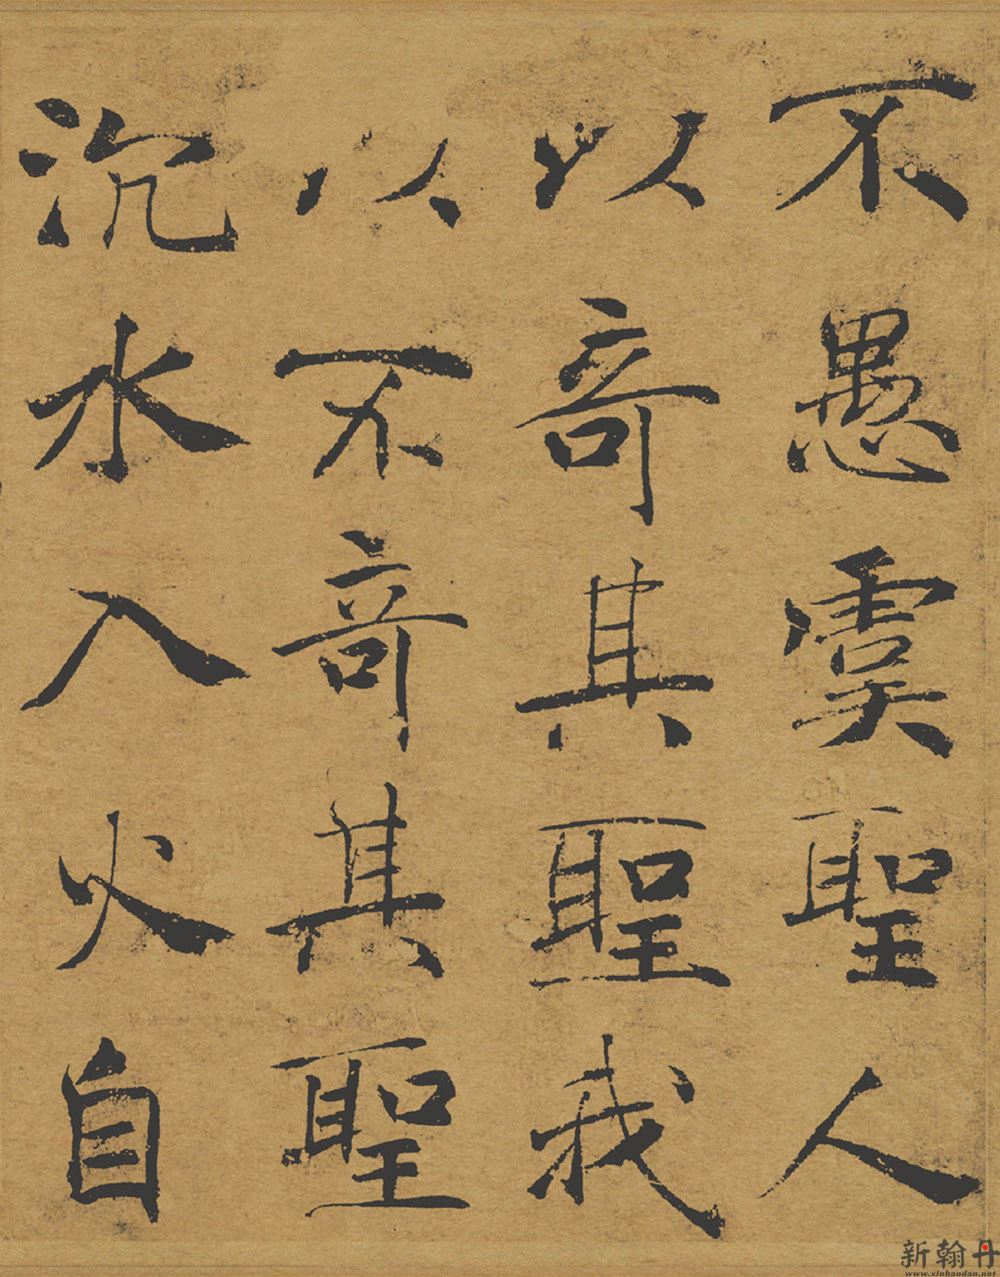 不愚虞聖人
以奇其聖我
以不奇其聖
沉水入火自
新翰丹
www.xinhandan.net